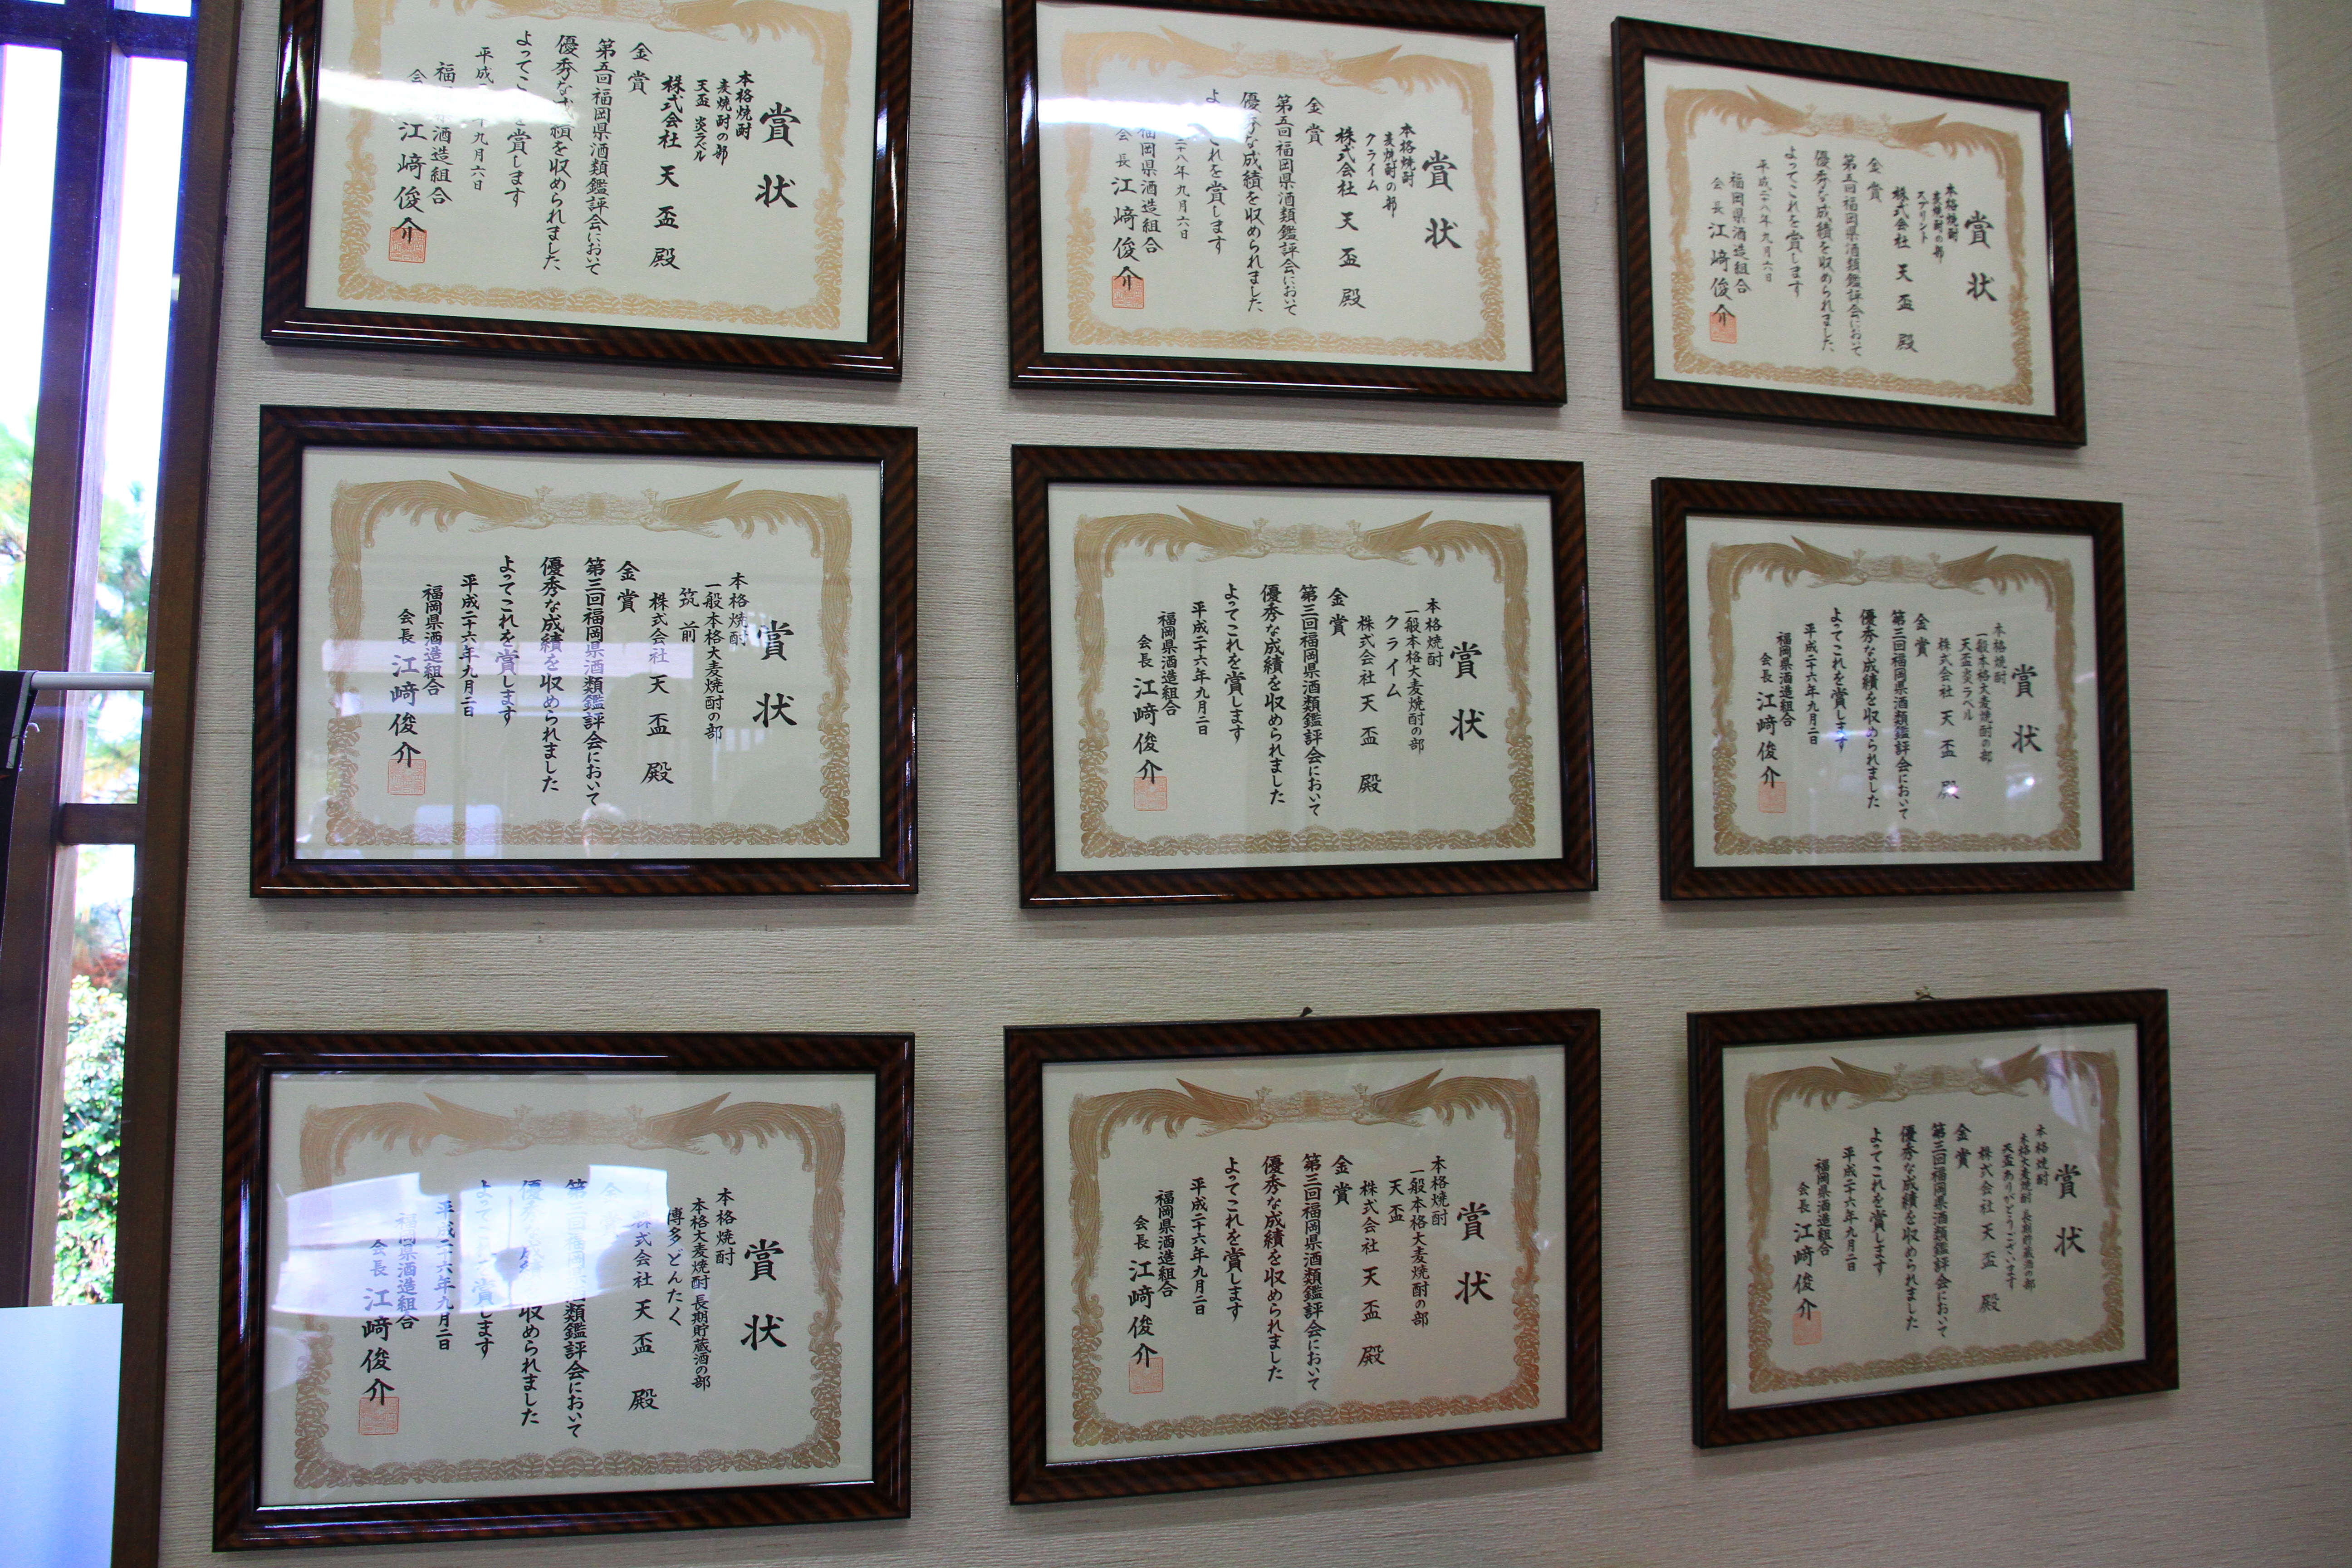 賞状
本格焼酎
麦焼酎の部
天盃 炎ラベル
株式会社 天盃 殿
金賞
第五回福岡県酒類鑑評会において
優秀な成績を収められました、
よってこ を賞します
平成 十九月六日
福 県酒造組合
会 江﨑俊介
賞状
本格焼酎
麦焼酎の部
クライム
株式会社 天盃 殿
金賞
第五回福岡県酒類鑑評会において
優秀な成績を収められました、
よ これを賞します
二十八年九月六日
福岡県酒造組合
会長 江﨑俊介
賞状
本格焼酎
麦焼酎の部
スプリント
株式会社 天盃 殿
金賞
第五回福岡県酒類鑑評会において
優秀な成績を収められました、
よってこれを賞します
平成二十八年九月六日
福岡県酒造組合
会長 江﨑俊介
賞状
本格焼酎
一般本格大麦焼酎の部
筑前
株式会社 天盃 殿
金賞
第三回福岡県酒類鑑評会において
優秀な成績を収められました
よってこれを賞します
平成二十六年九月二日
福岡県酒造組合
会長 江﨑俊介
賞状
本格焼酎
一般本格大麦焼酎の部
クライム
株式会社 天盃 殿
金賞
第三回福岡県酒類鑑評会において
優秀な成績を収められました
よってこれを賞します
平成二十六年九月二日
福岡県酒造組合
会長 江﨑俊介
賞状
本格焼酎
一般本格大麦焼酎の部
天盃炎ラベル
株式会社 天盃 殿
金賞
第三回福岡県酒類鑑評会において
優秀な成績を収められました
よってこれを賞します
平成二十六年九月二日
福岡県酒造組合
会長 江﨑俊介
賞状
本格焼酎
本格大麦焼酎 長期貯蔵酒の部
博多どんたく
株式会社 天盃 殿
金
第三回福岡 酒類鑑評会において
優秀な成績を収められました
よってこ 賞します
平成二十六年九月二日
福岡県酒造組合
会長 江﨑俊介
賞状
本格焼酎
一般本格大麦焼酎の部
天盃
株式会社 天盃 殿
金賞
第三回福岡県酒類鑑評会において
優秀な成績を収められました
よってこれを賞します
平成二十六年九月二日
福岡県酒造組合
会長 江﨑俊介
賞状
本格焼酎
本格大麦焼酎 長期貯蔵酒の部
天盃ありがとうございます
株式会社 天盃 殿
金賞
第三回福岡県酒類鑑評会において
優秀な成績を収められました
よってこれを賞します
平成二十六年九月二日
福岡県酒造組合
会長 江﨑俊介